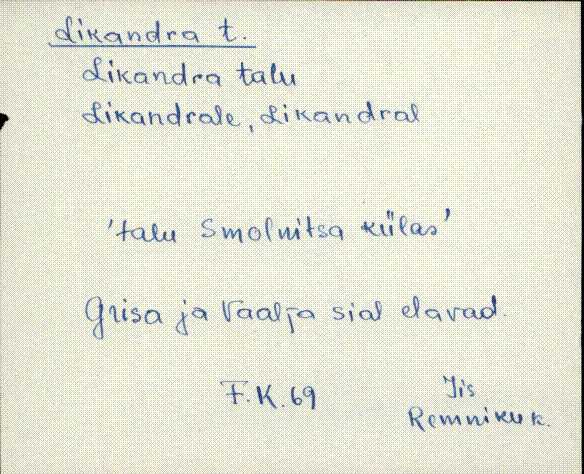 Likandra t.
Likandra talu
Likandrale, Likandral
'talu Smolnitsa külas'
Grisa ja Vaalja sial elavad.
F.K. 69
Iis
Remniku k.